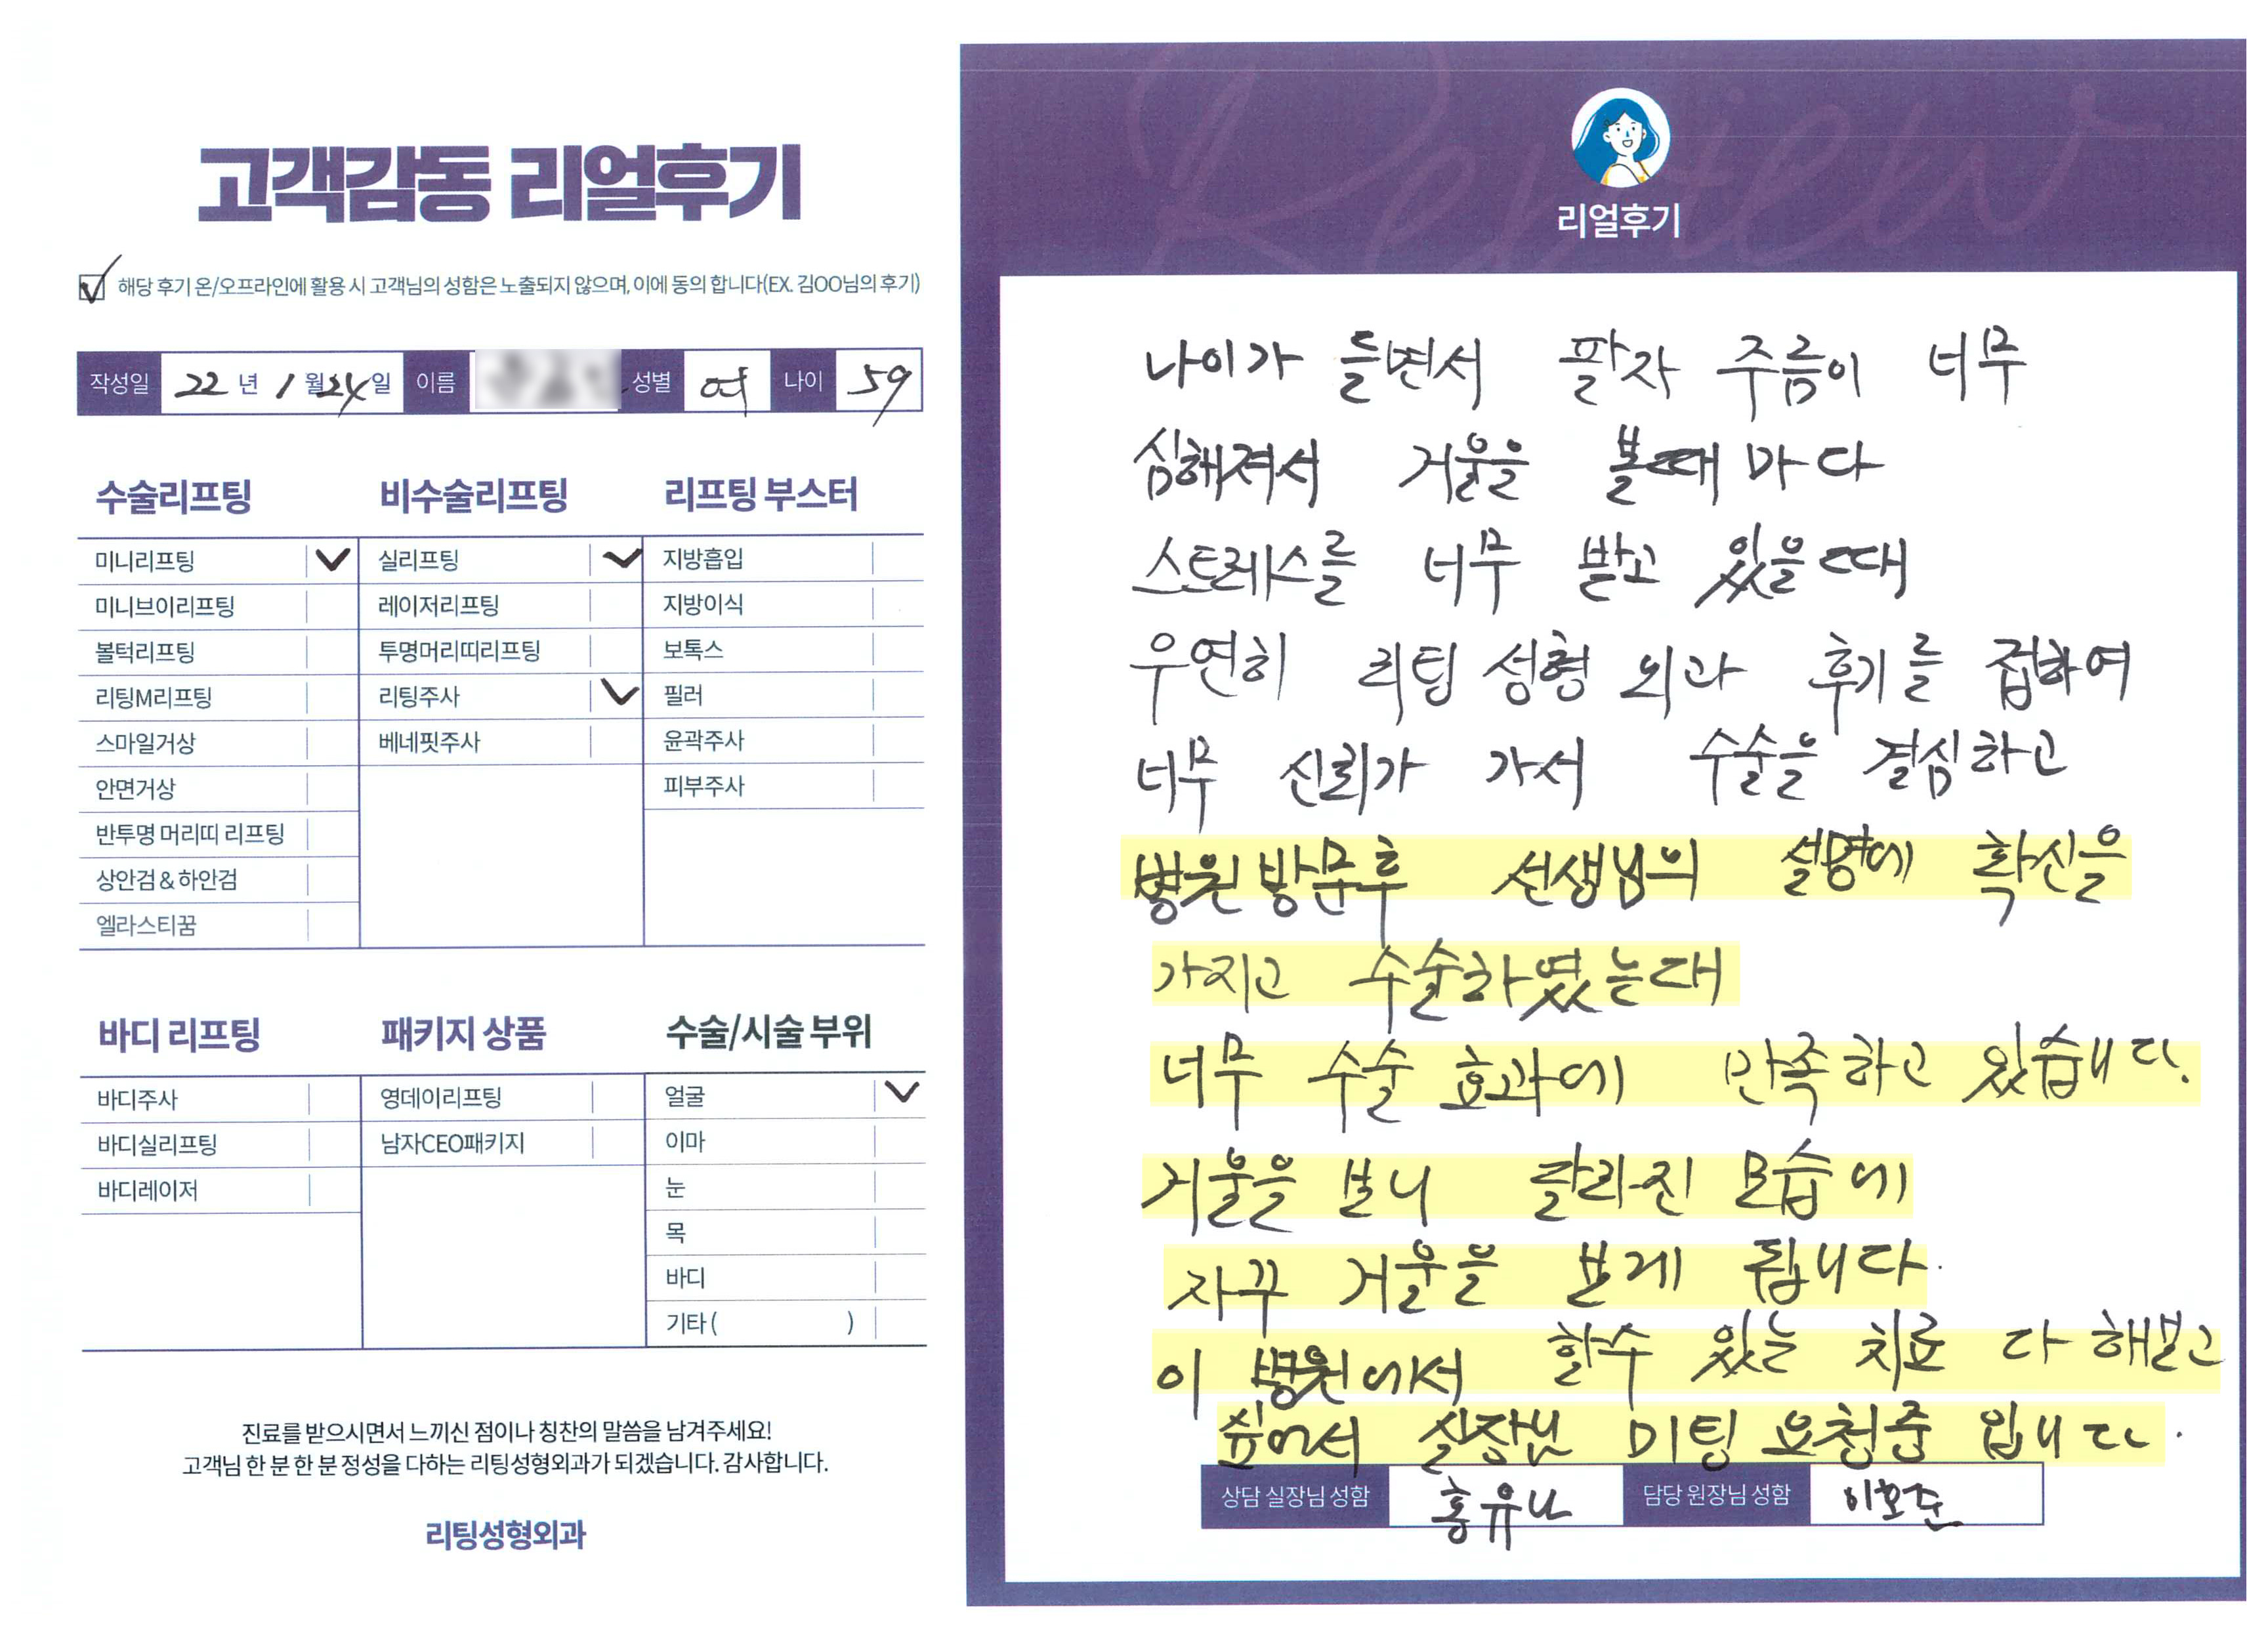 고객감동 리얼후기
해당 후기 온/오프라인에 활용 시 고객님의 성함은 노출되지 않으며, 이에 동의 합니다(EX. 김OO님의 후기)
작성일 22 년 1 월 24 일 이름 성별 여 나이 59
수술리프팅
미니리프팅
미니브이리프팅
볼턱리프팅
리팅M리프팅
스마일거상
안면거상
반투명 머리띠 리프팅
상안검 & 하안검
엘라스티꿈
비수술리프팅
실리프팅
레이저리프팅
투명머리띠리프팅
리팅주사
베네핏주사
리프팅 부스터
지방흡입
지방이식
보톡스
필러
윤곽주사
피부주사
바디 리프팅
바디주사
바디실리프팅
바디레이저
패키지 상품
영데이리프팅
남자CEO패키지
수술/시술 부위
얼굴
이마
눈
목
바디
기타 ( )
진료를 받으시면서 느끼신 점이나 칭찬의 말씀을 남겨주세요!
고객님 한 분 한 분 정성을 다하는 리팅성형외과가 되겠습니다. 감사합니다.
리팅성형외과
Review
리얼후기
나이가 들면서 팔자 주름이 너무
심해져서 거울을 볼때 마다
스트레스를 너무 받고 있을때
우연히 리팅 성형 외과 후기를 접하여
너무 신뢰가 가서 수술을 결심하고
병원 방문후 선생님의 설명에 확신을
가지고 수술하였는대
너무 수술 효과에 만족하고 있습니다.
거울을 보니 달라진 모습에
자꾸 거울을 보게 됩니다.
이 병원에서 할수 있는 치료 다 해보고
싶어서 실장님 미팅 요청중 입니다.
상담 실장님 성함 홍유나 담당 원장님 성함 이호준